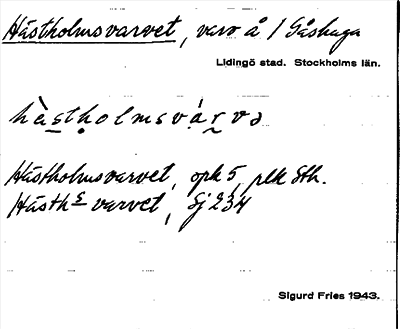 Hästholmsvarvet, varv å / Gåshaga
Lidingö stad. Stockholms län.
hàstholmsvárvə
Hästholmsvarvet, opk 5, plk Sth.
Häsths varvet, Sj 234
Sigurd Fries 1943.